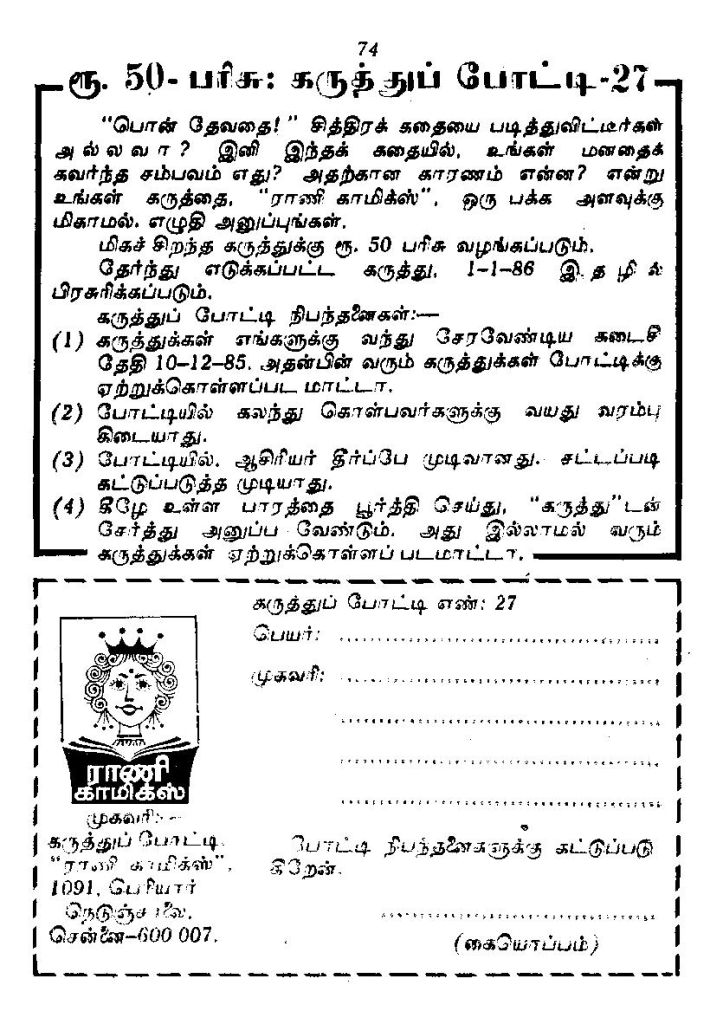 74
ரூ. 50- பரிசு: கருத்துப் போட்டி-27
"பொன் தேவதை!" சித்திரக் கதையை படித்துவிட்டீர்கள்
அல்லவா? இனி இந்தக் கதையில், உங்கள் மனதைக்
கவர்ந்த சம்பவம் எது? அதற்கான காரணம் என்ன? என்று
உங்கள் கருத்தை, "ராணி காமிக்ஸ்", ஒரு பக்க அளவுக்கு
மிகாமல், எழுதி அனுப்புங்கள்.
மிகச் சிறந்த கருத்துக்கு ரூ. 50 பரிசு வழங்கப்படும்.
தேர்ந்து எடுக்கப்பட்ட கருத்து, 1-1-86 இதழில்
பிரசுரிக்கப்படும்.
கருத்துப் போட்டி நிபந்தனைகள்:—
(1) கருத்துக்கள் எங்களுக்கு வந்து சேரவேண்டிய கடைசி
தேதி 10-12-85. அதன்பின் வரும் கருத்துக்கள் போட்டிக்கு
ஏற்றுக்கொள்ளப்பட மாட்டா.
(2) போட்டியில் கலந்து கொள்பவர்களுக்கு வயது வரம்பு
கிடையாது.
(3) போட்டியில், ஆசிரியர் தீர்ப்பே முடிவானது. சட்டப்படி
கட்டுப்படுத்த முடியாது.
(4) கீழே உள்ள பாரத்தை பூர்த்தி செய்து, "கருத்து"டன்
சேர்த்து அனுப்ப வேண்டும். அது இல்லாமல் வரும்
கருத்துக்கள் ஏற்றுக்கொள்ளப் படமாட்டா.
கருத்துப் போட்டி எண்: 27
பெயர்:
முகவரி:
ராணி
காமிக்ஸ்
முகவரி:-
கருத்துப் போட்டி,
"ராணி காமிக்ஸ்",
1091, பெரியார்
நெடுஞ்சாலை,
சென்னை-600 007.
போட்டி நிபந்தனைகளுக்கு கட்டுப்படு
கிறேன்.
(கையொப்பம்)